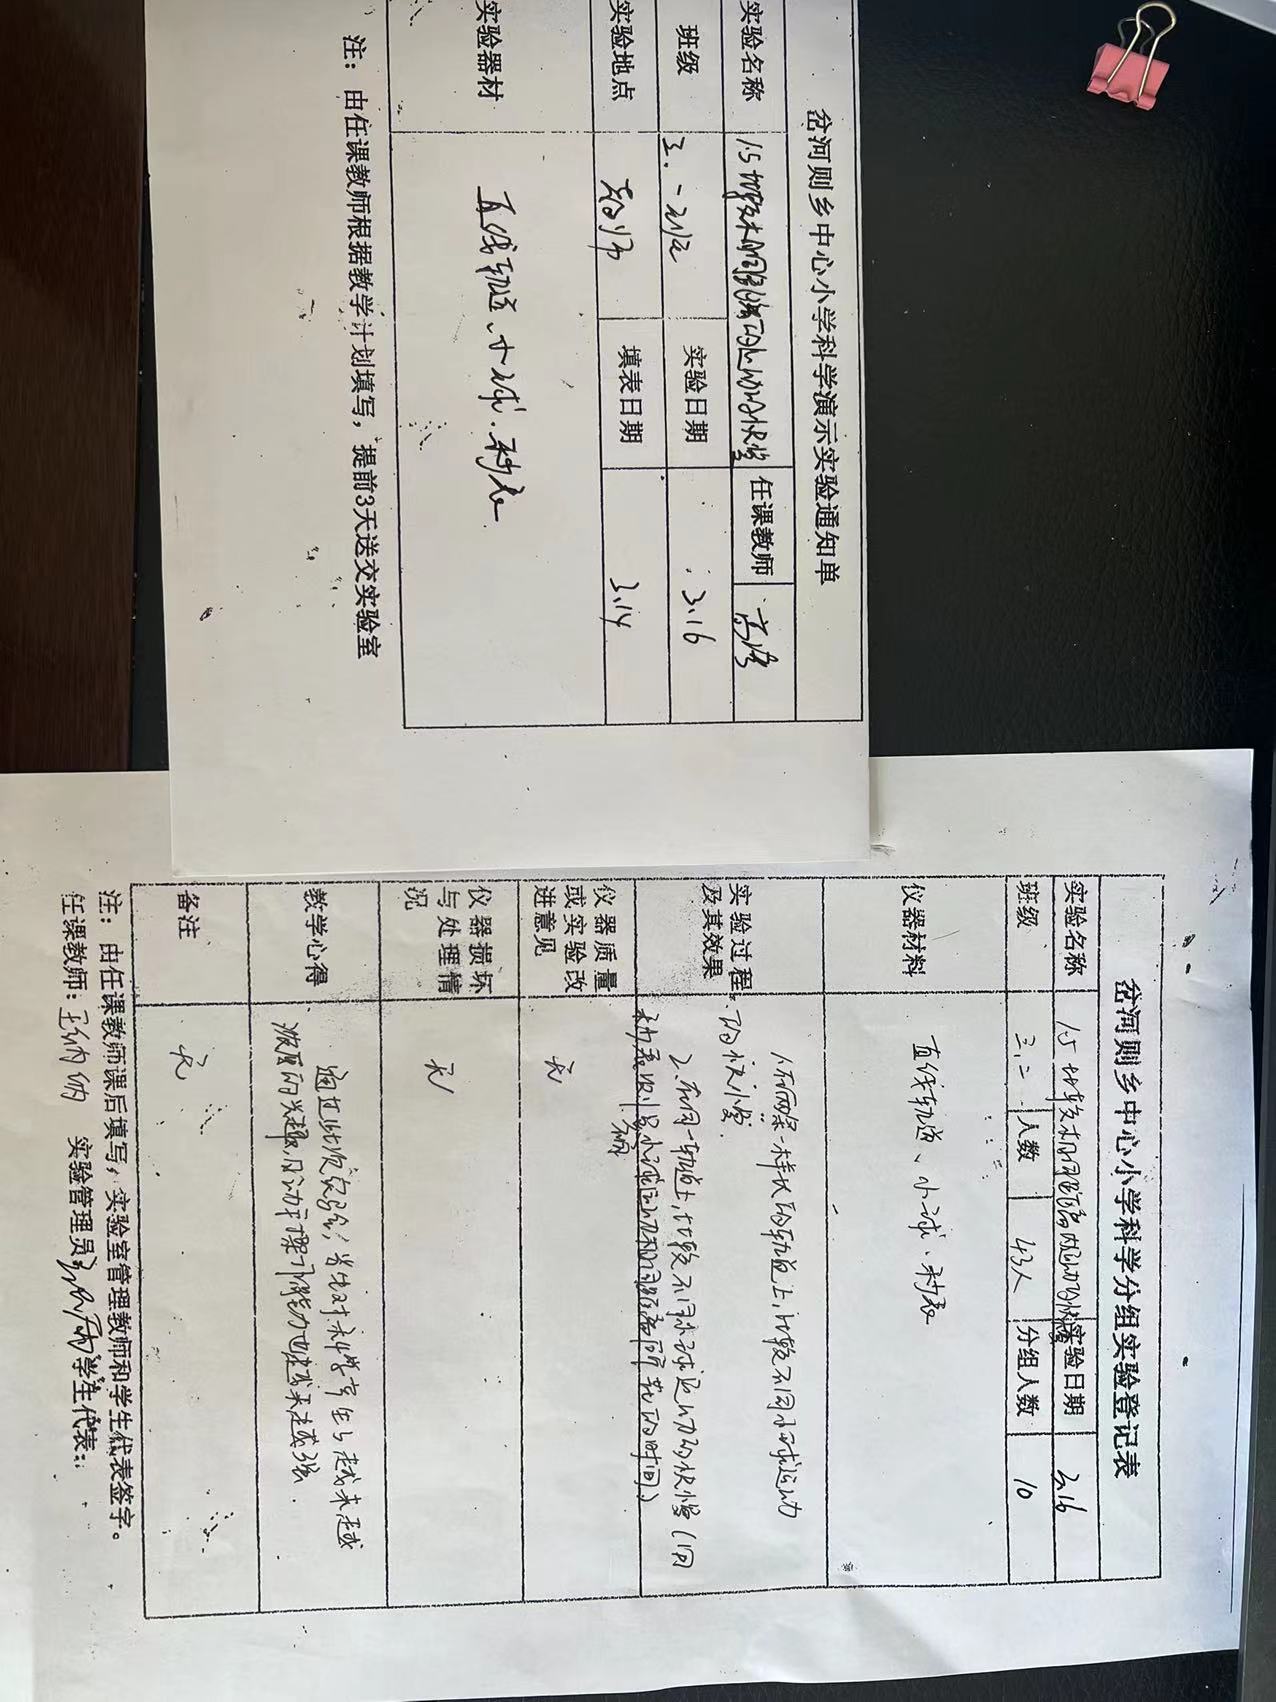 岔河则乡中心小学科学演示实验通知单
实验名称 1.5 比较相同距离内运动的快慢 任课教师
班级 三.一班 实验日期 3.16
实验地点 填表日期 3.14
实验器材 直线轨道、小球、秒表
注：由任课教师根据教学计划填写，提前3天送交实验室
岔河则乡中心小学科学分组实验登记表
实验名称 1.5 比较相同距离内运动的快慢 实验日期 3.16
班级 三.二 人数 43人 分组人数 10
仪器材料 直线轨道、小球、秒表
实验过程及其效果 1.在两条一样长的轨道上，比较不同小球运动
的快慢。
2.在同一轨道上，比较不同小球运动的快慢（用
秒表测量小球运动相同距离所花的时间）
仪器质量或实验改进意见 无
仪器损坏与处理情况 无
教学心得 通过此次实验，学生对科学产生了越来越
浓厚的兴趣，且动手操作能力也越来越强。
备注 无
注：由任课教师课后填写，实验室管理教师和学生代表签字。
任课教师： 实验管理员： 学生代表：